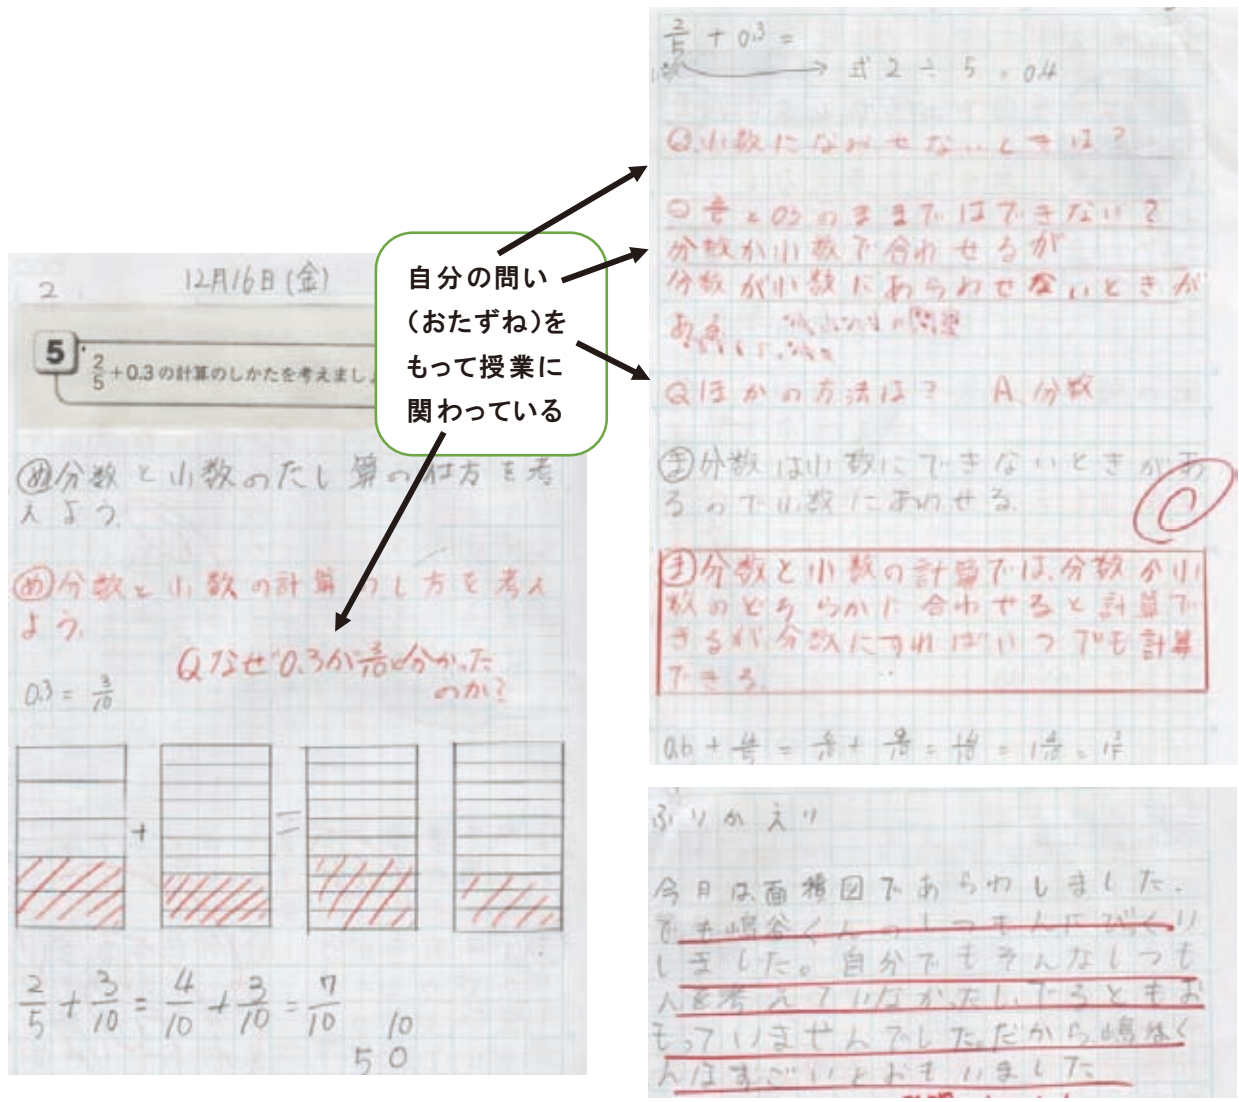 2
12月16日(金)
5
2/5+0.3の計算のしかたを考えまし
め分数と小数のたし算の仕方を考
えよう。
め分数と小数の計算のし方を考え
よう。
Qなぜ0.3が3/10と分かった
のか?
0.3 = 3/10
+ =
2/5 + 3/10 = 4/10 + 3/10 = 7/10
10
50
自分の問い
(おたずね)を
もって授業に
関わっている
2/5 + 0.3 =
式 2 ÷ 5 = 0.4
Q.小数になおせないときは?
Q 2/5と0.3のままではできない?
分数か小数で合わせるが
分数が小数にあらわせないときが
ある
Qほかの方法は? A.分数
ま分数は小数にできないときがあ
るので小数にあわせる。
ま分数と小数の計算では、分数か小
数のどちらかに合わせると計算で
きるが、分数にすればいつでも計算
できる。
0.6 + 4/5 = 6/10 + 8/10 = 14/10 = 1 4/10 = 1 2/5
ふりかえり
今日は面積図であらわしました。
でも嶋谷くんのしつもんにびっくり
しました。自分でもそんなしつも
んを考えていなかったし、でるともお
もっていませんでした。だから嶋谷く
んはすごいとおもいました